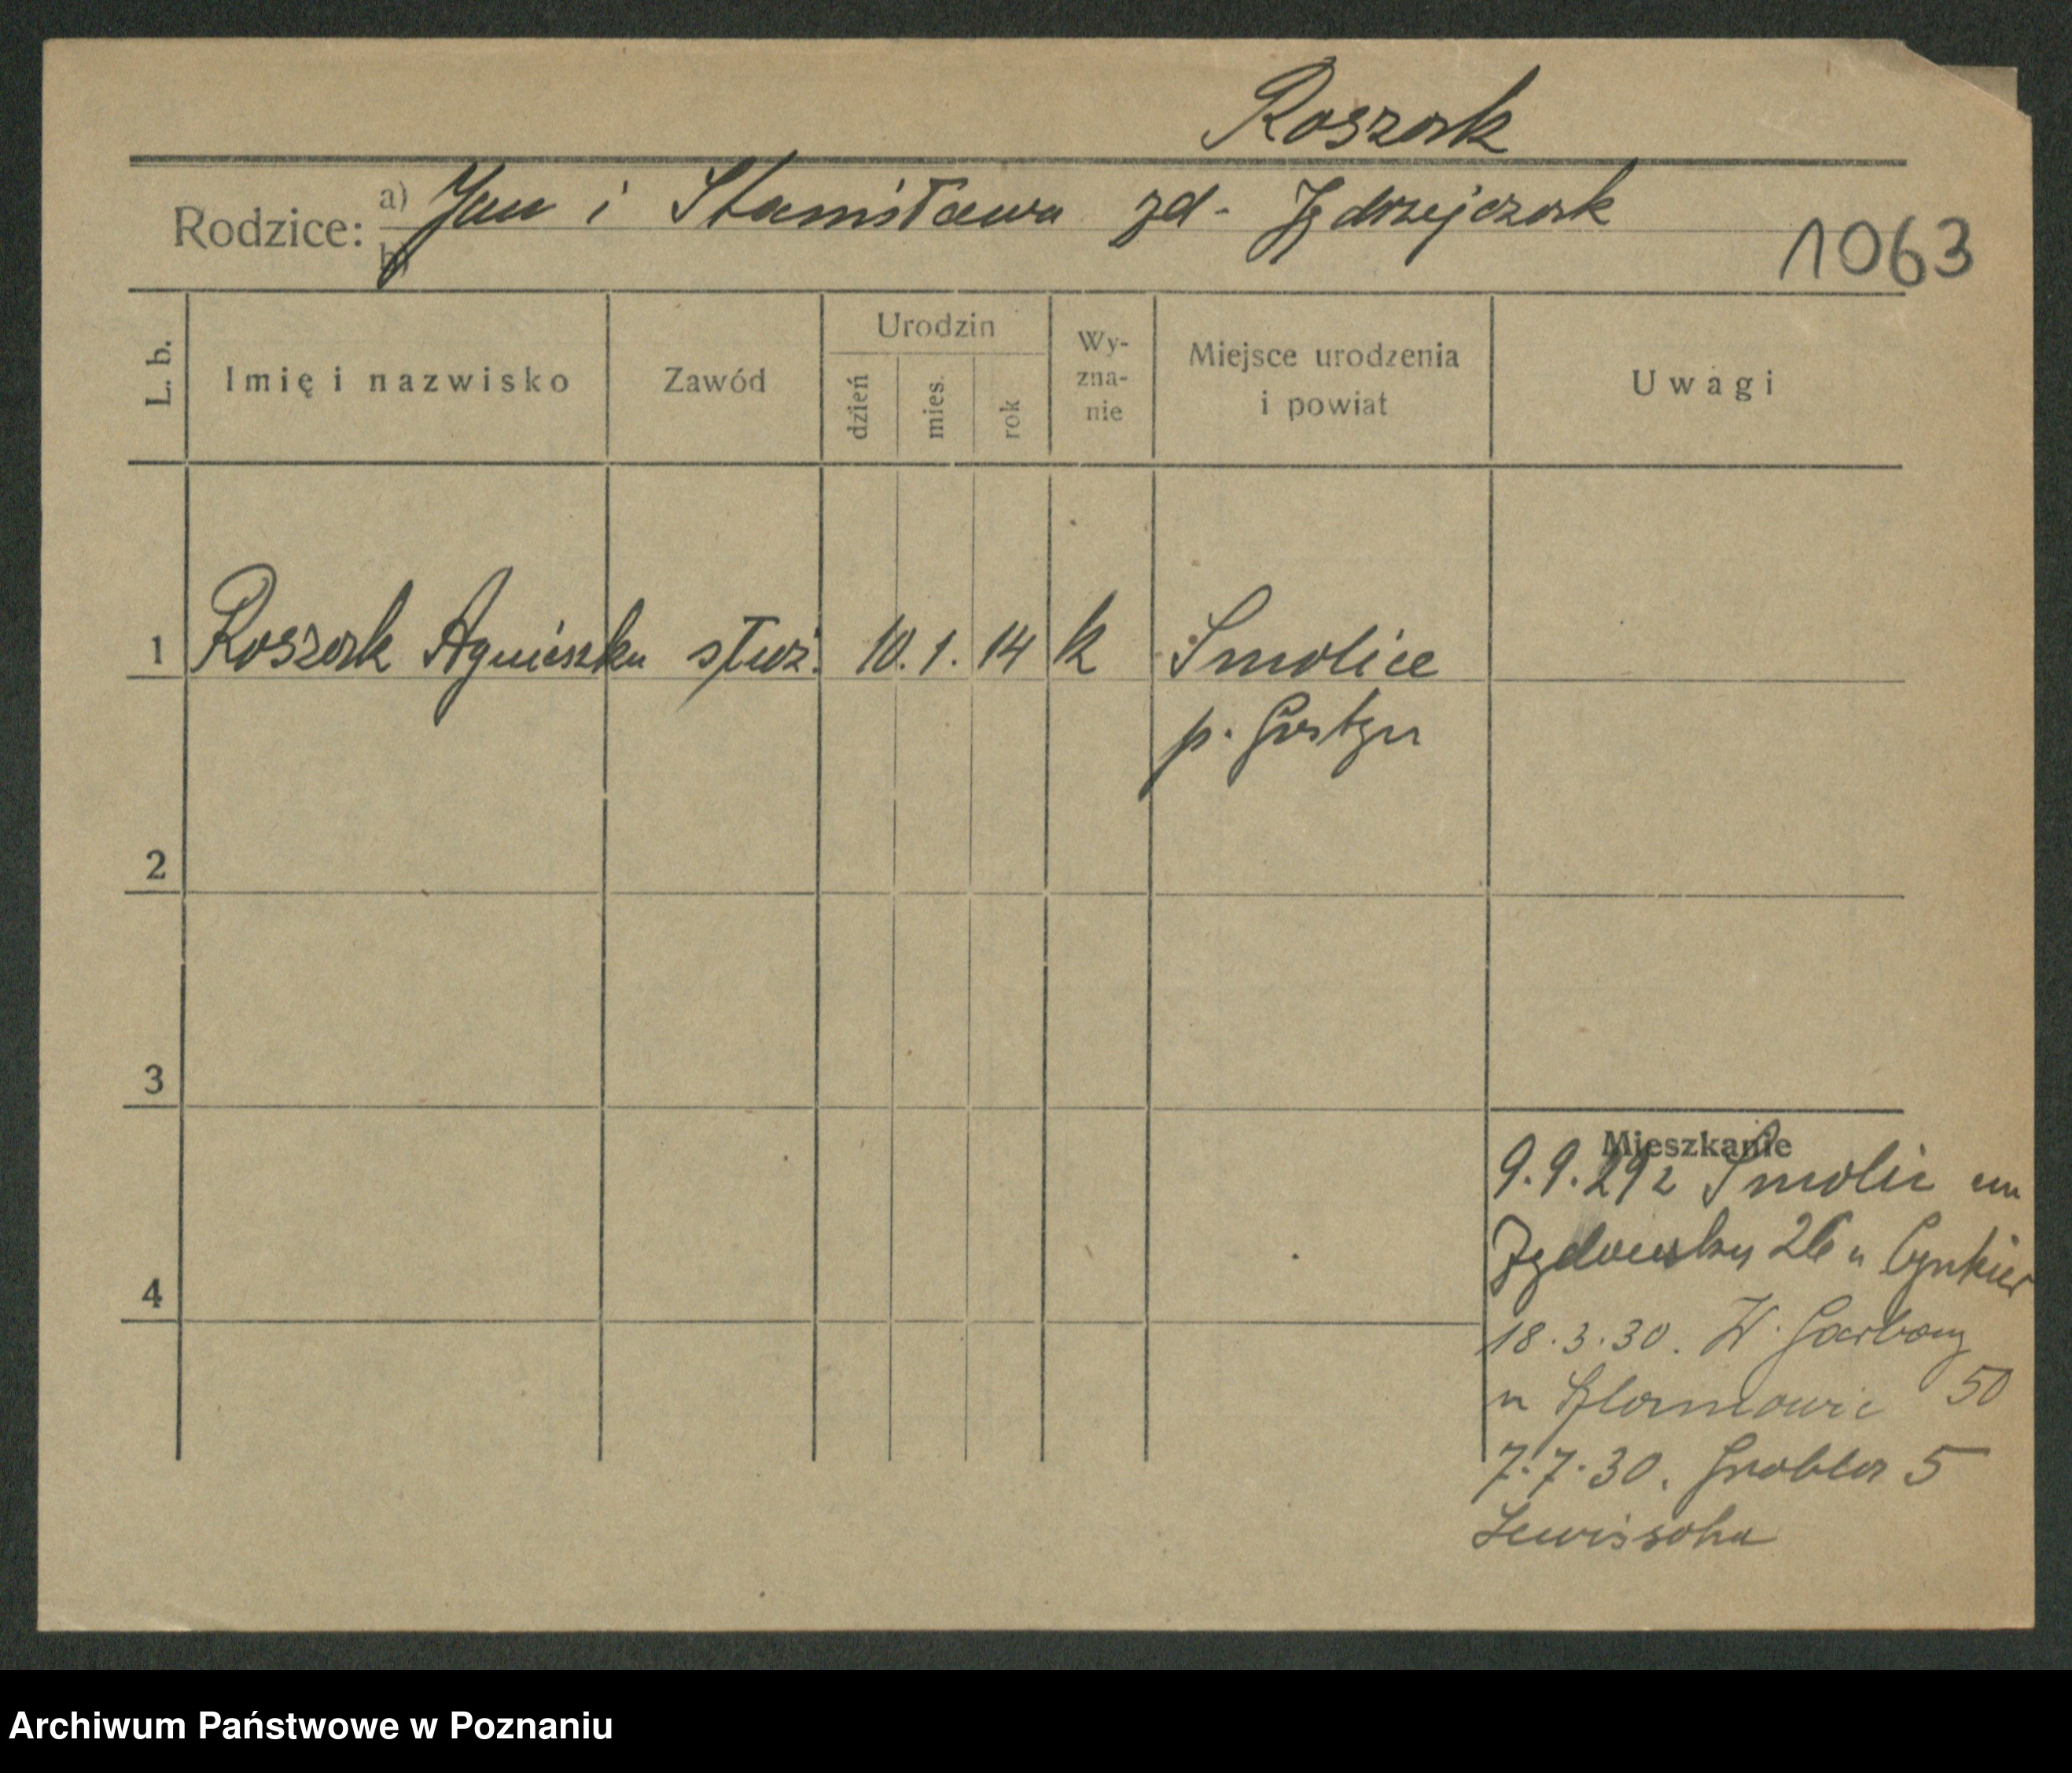 Roszak
Rodzice: a) Jan i Stanisława zd. Jędrzejczak
b)
1063
L. b.
Imię i nazwisko
Zawód
Urodzin
dzień
mies.
rok
Wy-
zna-
nie
Miejsce urodzenia
i powiat
Uwagi
1 Roszak Agnieszka służ. 10. 1. 14 k Smolice
p. Gostyń
2
3
4
Mieszkanie
9.9.29 z Smolic
Żydowska 26 u
18.3.30. W. Garbary
u 50
7.7.30. Grobla 5
Lewissohn
Archiwum Państwowe w Poznaniu